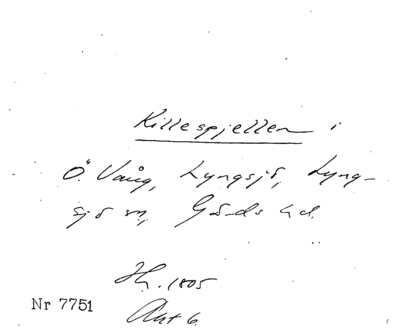 Killespjellen i
Ö. Vång, Lyngsjö, Lyng-
sjö sn, Gärds hd.
Hy. 1805
Akt 6.
Nr 7751